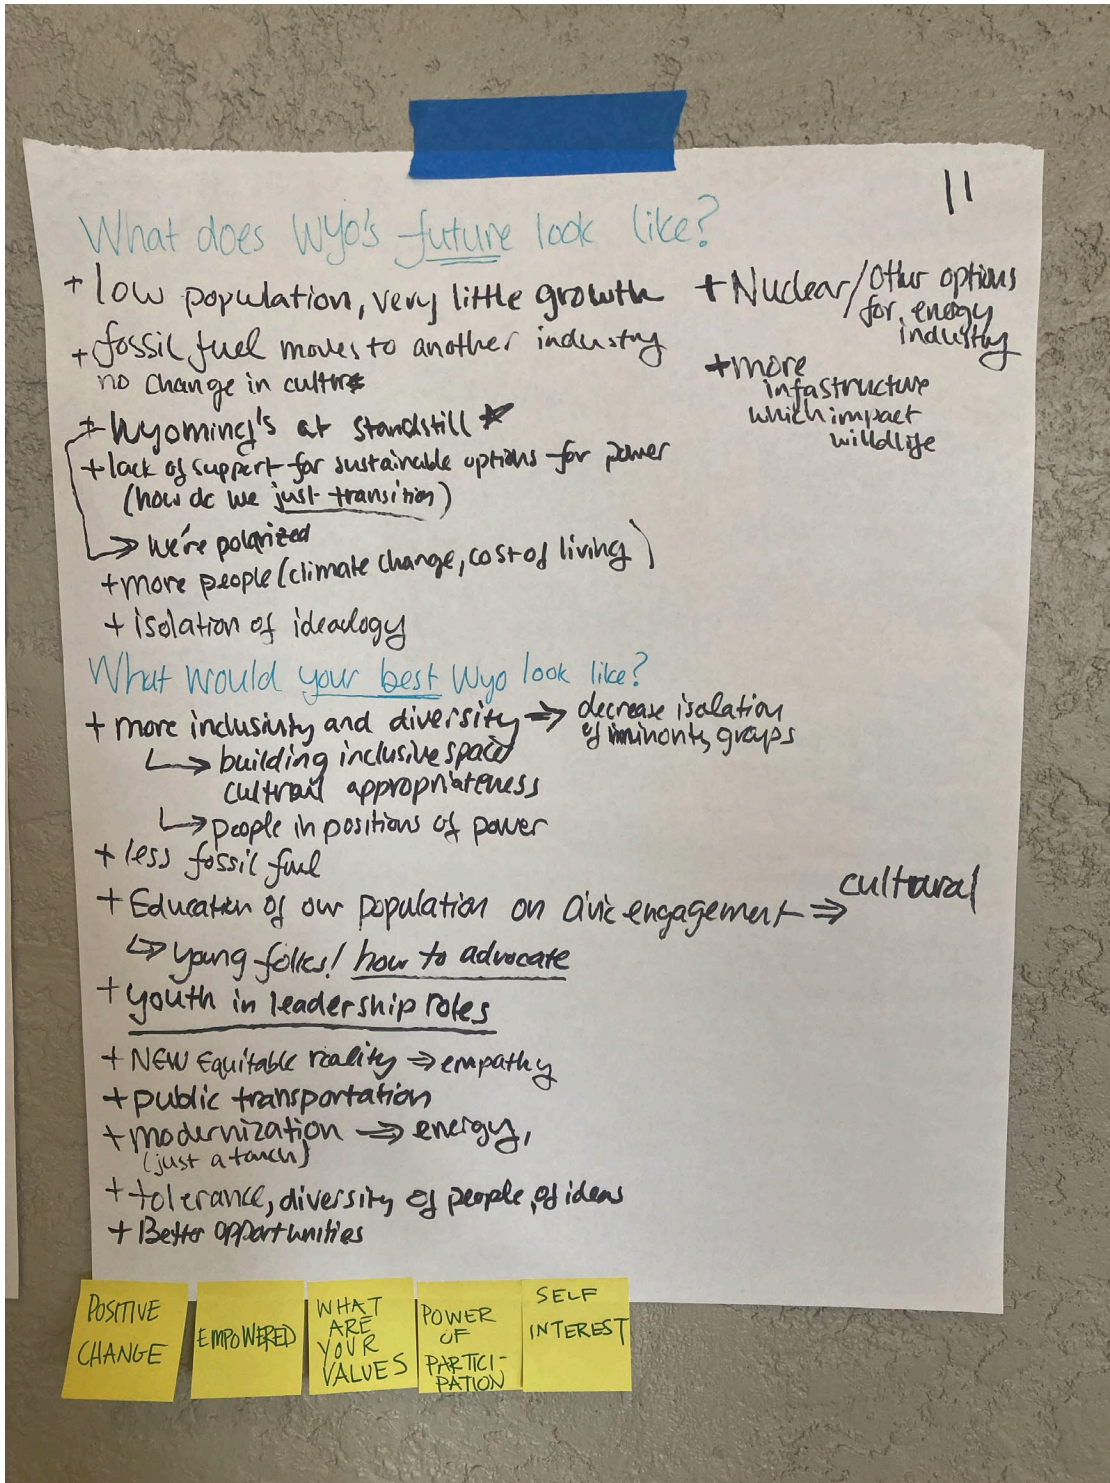 11
What does Wyo's future look like?
+ low population, very little growth
+ fossil fuel moves to another industry
no change in culture
+ Wyoming's at standstill
+ lack of support for sustainable options for power
(how do we just transition)
→ We're polarized
+ more people (climate change, cost of living)
+ isolation of idealogy
+ Nuclear/Other options
for energy
industry
+ more
infastructure
which impact
willdlife
What would your best Wyo look like?
+ more inclusivity and diversity ⇒ decrease isolation
of minority groups
↳ building inclusive space
cultrail appropriateness
↳ people in positions of power
+ less fossil fuel
+ Education of our population on civic engagement ⇒ cultural
↳ young folks! how to advocate
+ youth in leadership roles
+ NEW Equitable reality ⇒ empathy
+ public transportation
+ modernization ⇒ energy,
(just a touch)
+ tolerance, diversity of people, of ideas
+ Better opportunities
POSITIVE
CHANGE
EMPOWERED
WHAT
ARE
YOUR
VALUES
POWER
OF
PARTICI-
PATION
SELF
INTEREST